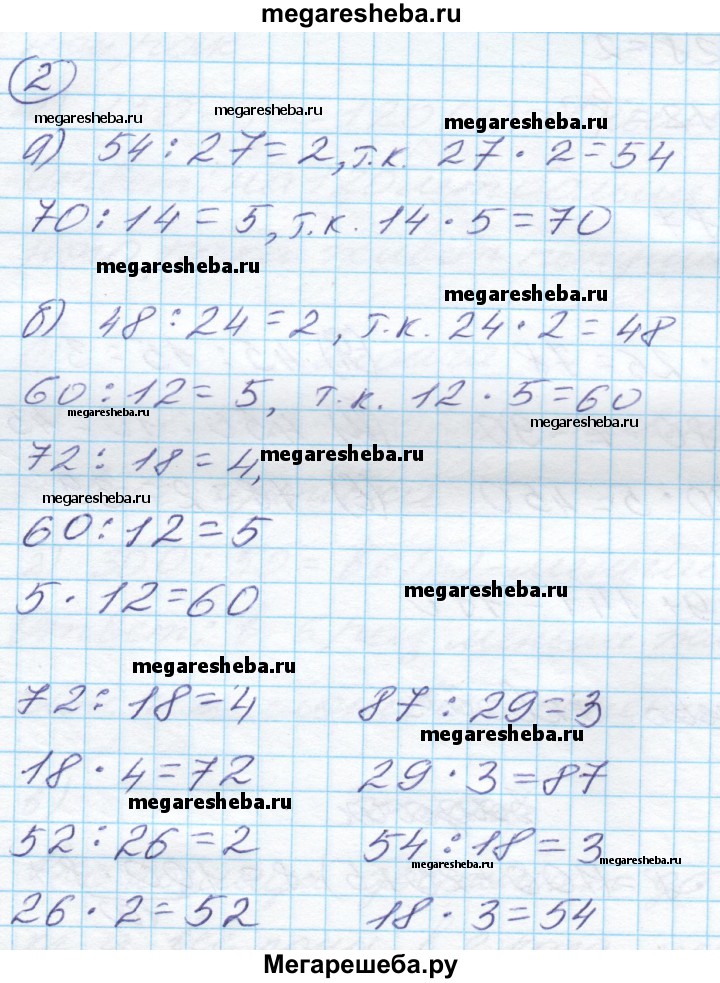 megaresheba.ru
2
megaresheba.ru
megaresheba.ru
megaresheba.ru
а) 54 : 27 = 2, т.к. 27 · 2 = 54
70 : 14 = 5, т.к. 14 · 5 = 70
megaresheba.ru
megaresheba.ru
б) 48 : 24 = 2, т.к. 24 · 2 = 48
60 : 12 = 5, т.к. 12 · 5 = 60
megaresheba.ru
megaresheba.ru
72 : 18 = 4,
megaresheba.ru
megaresheba.ru
60 : 12 = 5
5 · 12 = 60
megaresheba.ru
megaresheba.ru
72 : 18 = 4 87 : 29 = 3
megaresheba.ru
18 · 4 = 72 29 · 3 = 87
megaresheba.ru
52 : 26 = 2 54 : 18 = 3
megaresheba.ru
megaresheba.ru
26 · 2 = 52 18 · 3 = 54
Мегарешеба.ру